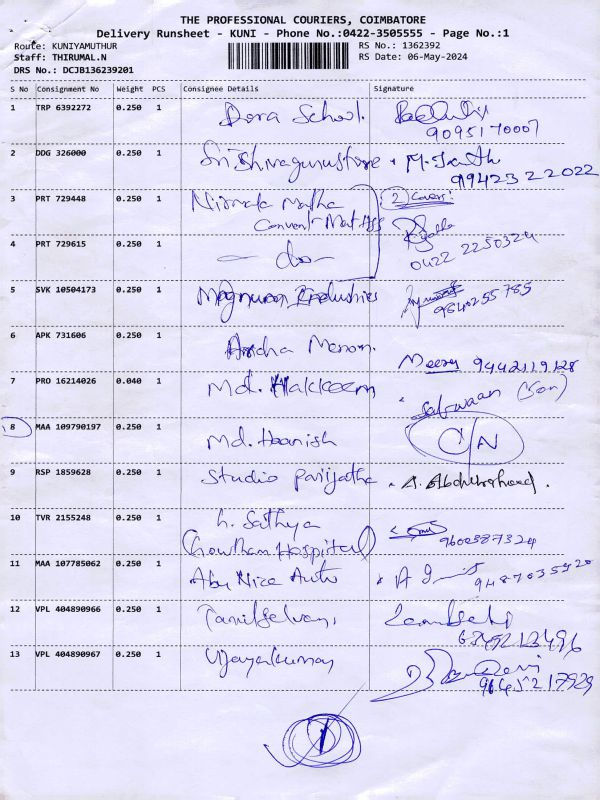 THE PROFESSIONAL COURIERS, COIMBATORE
Delivery Runsheet - KUNI - Phone No.:0422-3505555 - Page No.:1
Route: KUNIYAMUTHUR
RS No.: 1362392
Staff: THIRUMAL.N
RS Date: 06-May-2024
DRS No.: DCJB136239201
S No Consignment No Weight PCS Consignee Details Signature
1 TRP 6392272 0.250 1 Dora School.
9095170007
2 DDG 326000 0.250 1
9942322022
3 PRT 729448 0.250 1 Nirmala Matha 2 Covers:
Convent
4 PRT 729615 0.250 1 - do -
0422 2250324
5 SVK 10504173 0.250 1 Magnum Industries
9840255785
6 APK 731606 0.250 1 Menon.
9442119128
7 PRO 16214026 0.040 1 Md. Hakkeem
Safwaan (Son)
8 MAA 109790197 0.250 1 Md. C/N
9 RSP 1859628 0.250 1 Studio Parijatha A.
10 TVR 2155248 0.250 1 Sathya
(Gowtham Hospital) 9600387324
11 MAA 107785062 0.250 1 Abu Nice Auto
12 VPL 404890966 0.250 1 Tamilselvan,
13 VPL 404890967 0.250 1 Vijayakumar